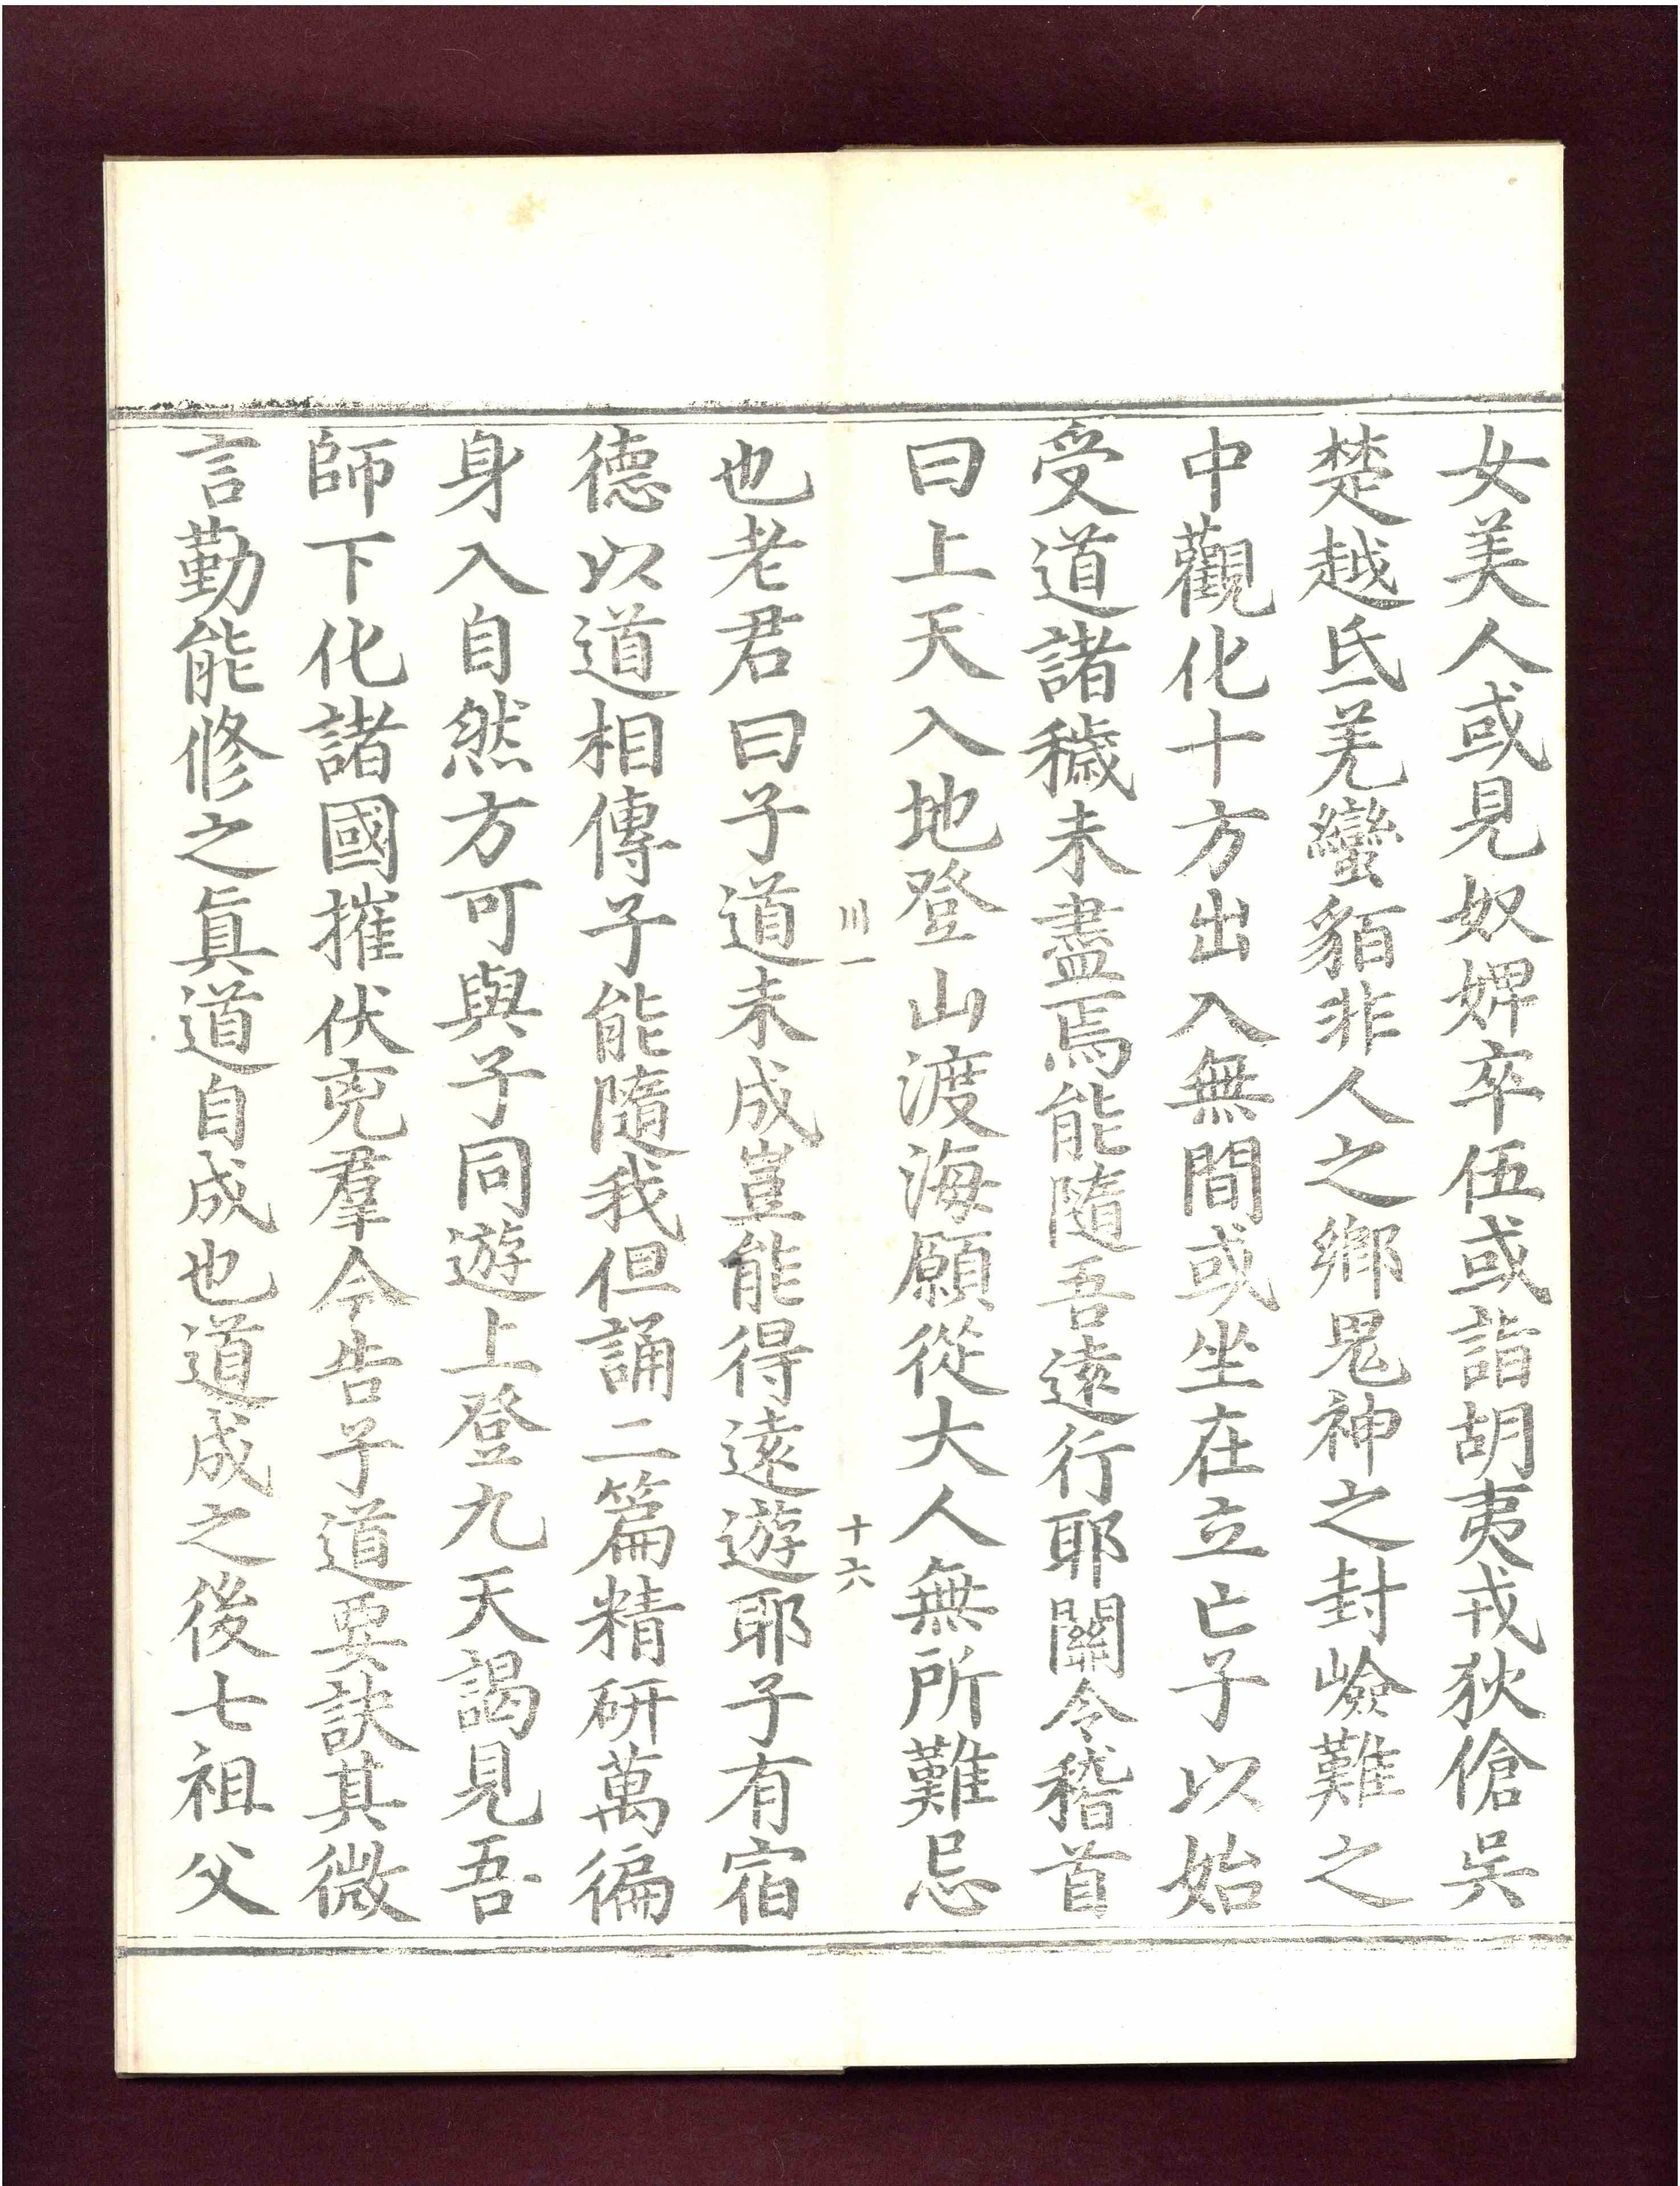 女美人或見奴婢卒伍或詣胡夷戎狄傖吳
楚越氐羌蠻貊非人之鄉鬼神之封嶮難之
中觀化十方出入無間或坐在立亡子以始
受道諸穢未盡焉能隨吾遠行耶關令稽首
曰上天入地登山渡海願從大人無所難忌
川一
十六
也老君曰子道未成豈能得遠遊耶子有宿
德以道相傳子能隨我但誦二篇精研萬徧
身入自然方可與子同遊上登九天謁見吾
師下化諸國摧伏兇羣今告子道要訣其微
言勤能修之眞道自成也道成之後七祖父